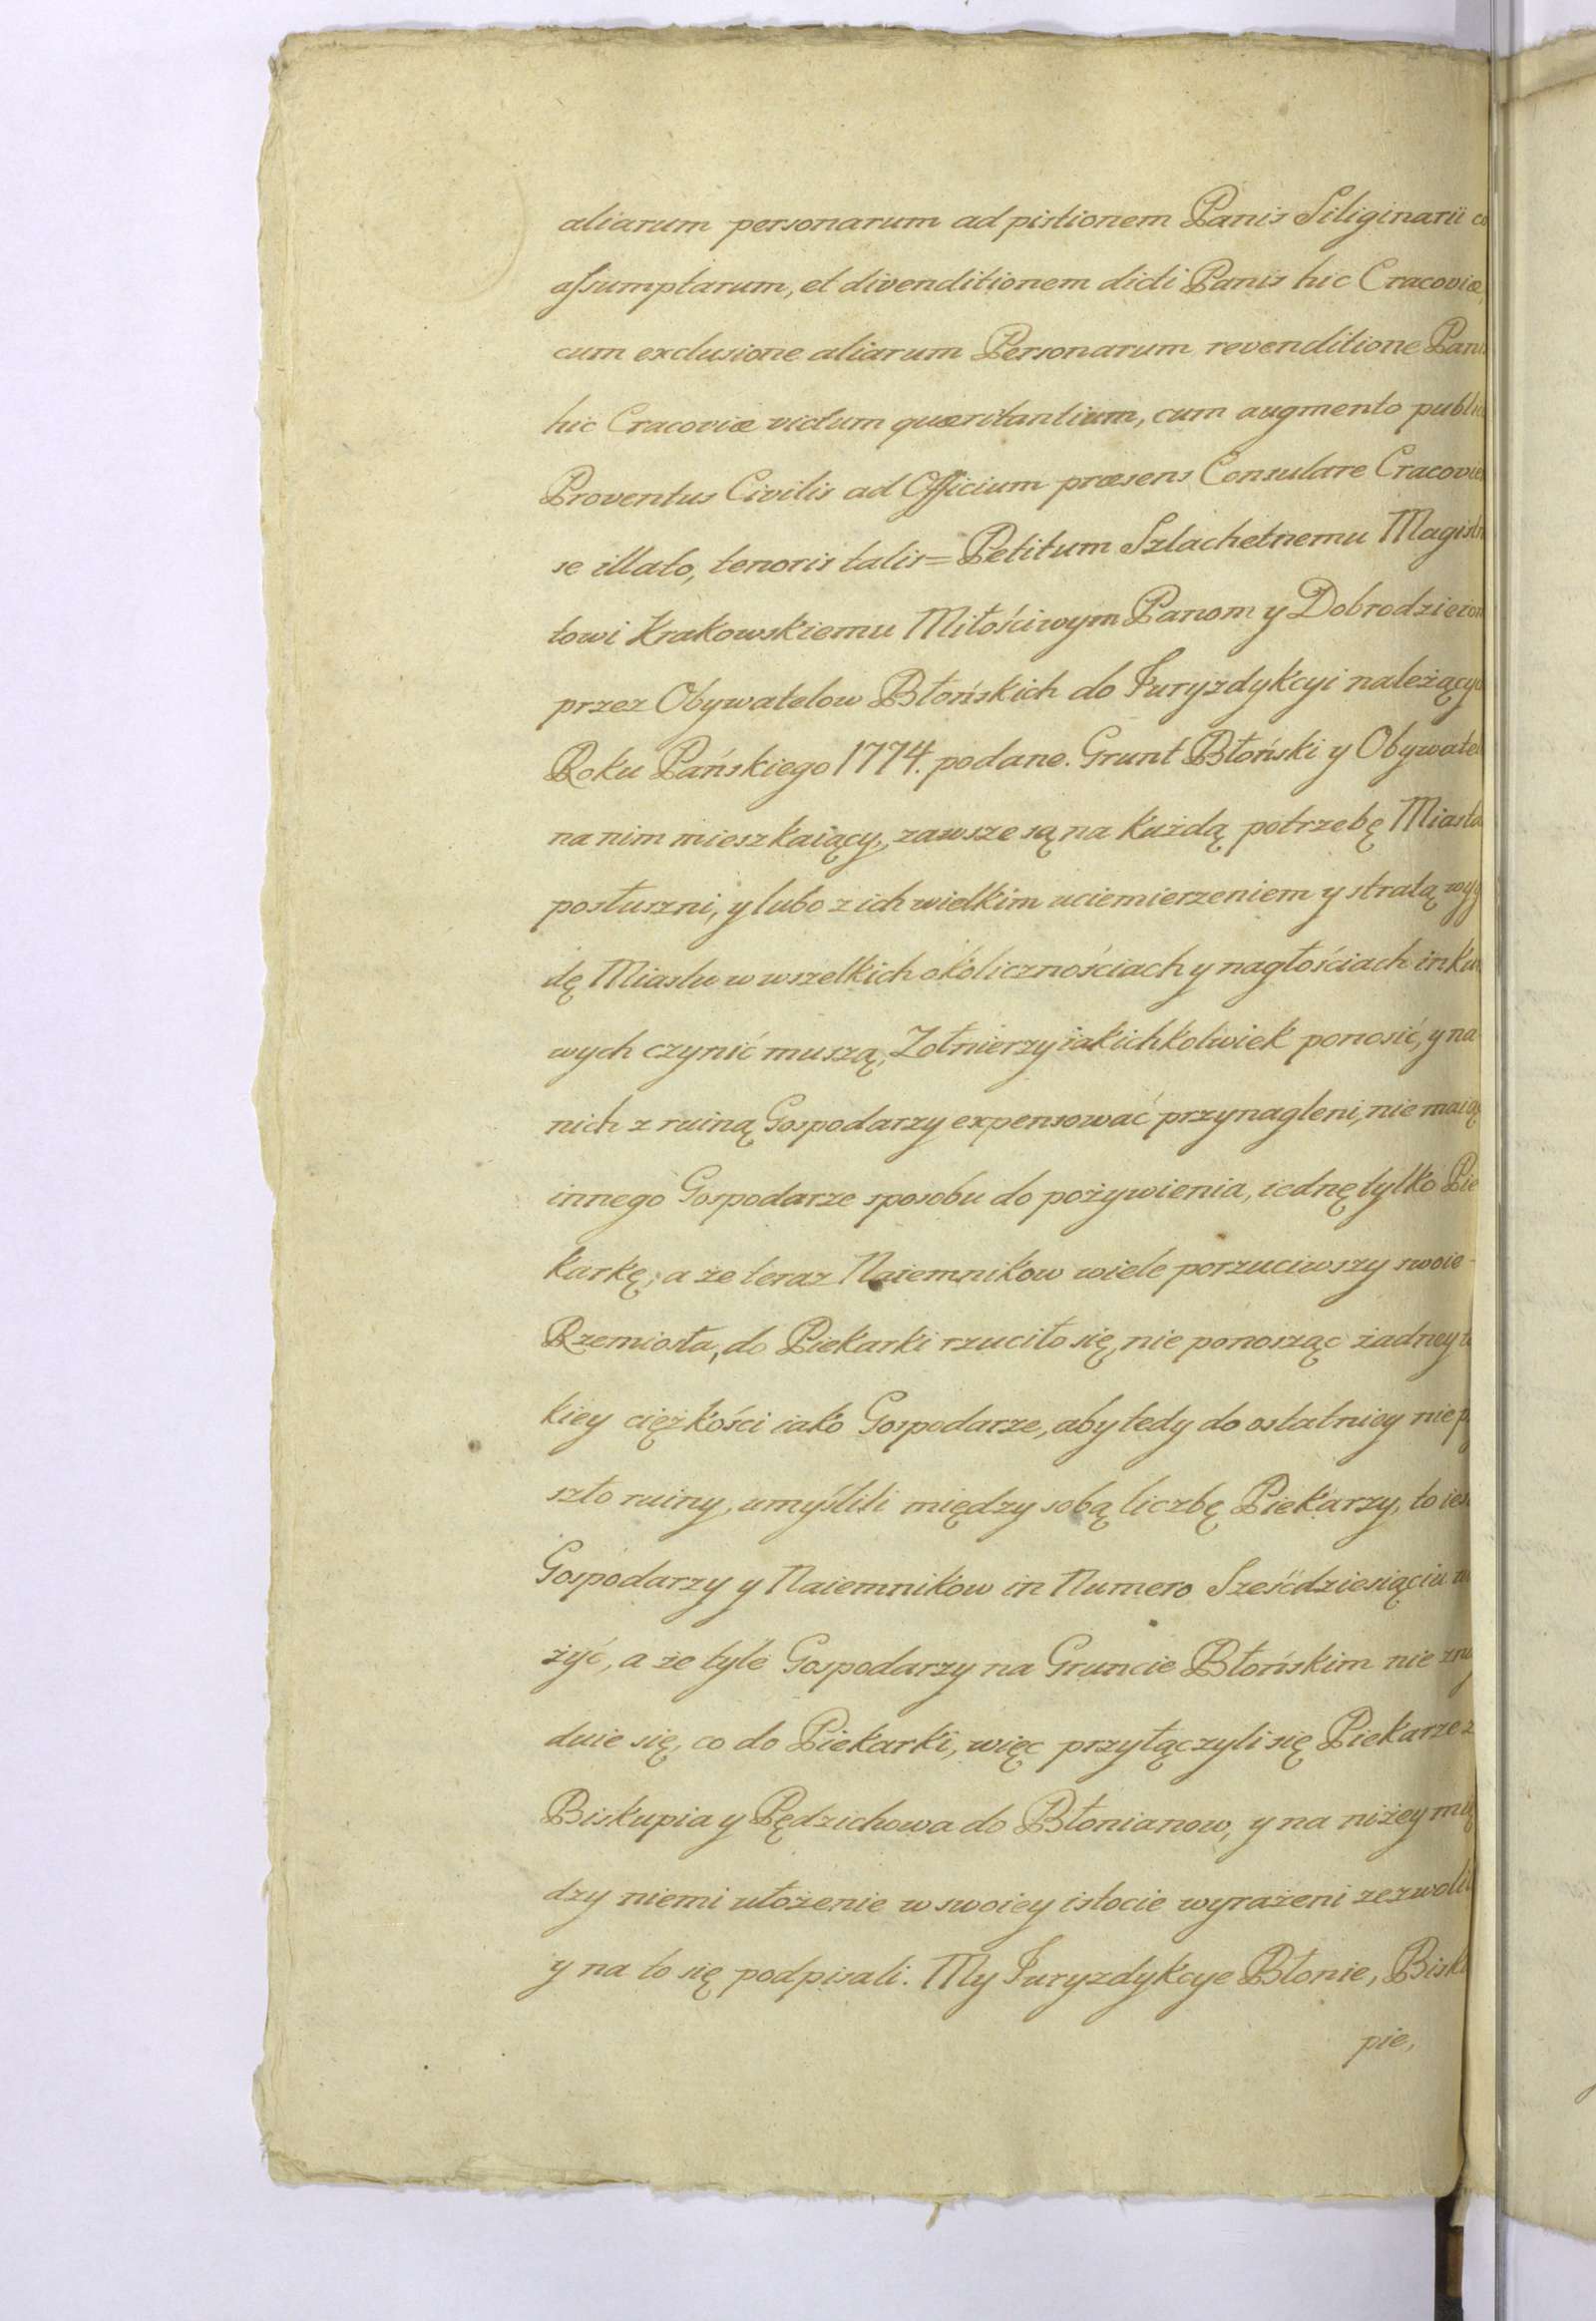 aliarum personarum ad pistionem Panis Siliginarii
assumptarum, et divenditionem dicti Panis hic Cracoviæ,
cum exclusione aliarum Personarum revenditione Panis
hic Cracoviæ victum quæritantium, cum augmento publi
Proventus Civilis ad Officium præsens Consulare Cracovien
se illato, tenoris talis= Petitum Szlachetnemu Magistra
towi Krakowskiemu Miłościwym Panom y Dobrodzieiom
przez Obywatelow Błońskich do Juryzdykcyi należących
Roku Pańskiego 1774. podane. Grunt Błoński y Obywatele
na nim mieszkaiący, zawsze są na każdą potrzebę Miasta
posłuszni, y lubo z ich wielkim uciemierzeniem y stratą wygo
dę Miastu w wszelkich okolicznościach y nagłościach inku
wych czynić muszą, Zołnierzy iakichkolwiek ponosić, y na
nich z ruiną Gospodarzy expensować przynagleni, nie maią
innego Gospodarze sposobu do pożywienia, iednę tylko Pie
karkę, a że teraz Naiemnikow wiele porzuciwszy swoie
Rzemiosła, do Piekarki rzuciło się, nie ponosząc żadney ta
kiey ciężkości iako Gospodarze, aby tedy do ostatniey nie przy
szło ruiny, umyślili między sobą liczbę Piekarzy, to iest
Gospodarzy y Naiemnikow in Numero Sześćdziesiąciu
żyć, a że tyle Gospodarzy na Gruncie Błońskim nie znay
duie się, co do Piekarki, więc przyłączyli się Piekarze z
Biskupia y Pędzichowa do Błonianow, y na niżey mię
dzy niemi ułożenie w swoiey istocie wyrażeni zezwolili
y na to się podpisali. My Juryzdykcye Błonie, Bisku
pie,